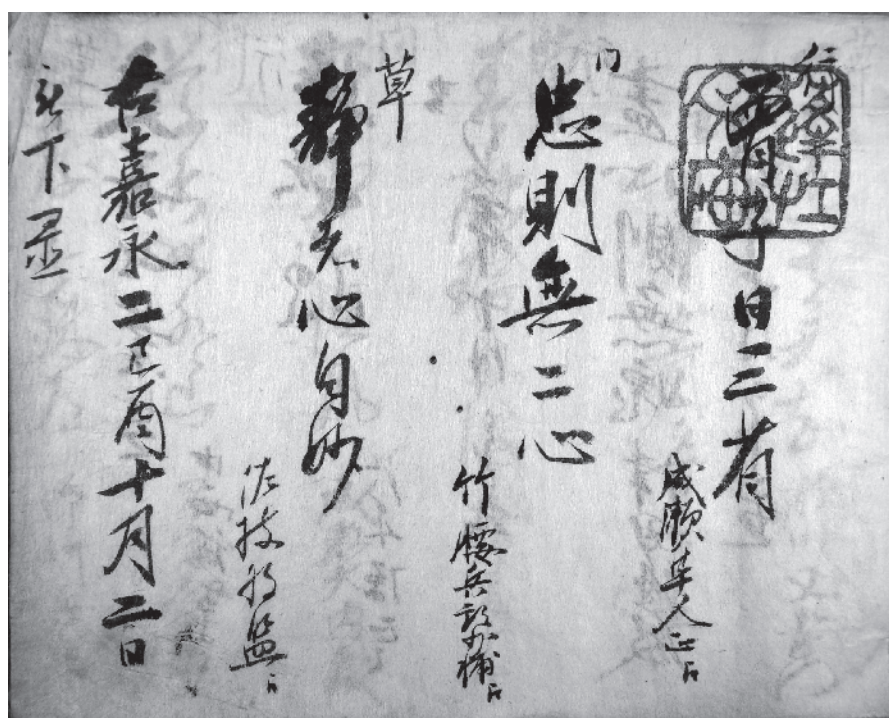 行
子日三省
成瀬隼人正
忠則無二心
竹腰兵部少輔
草
静者心自妙
佐枝将監
右嘉永二己酉十月二日